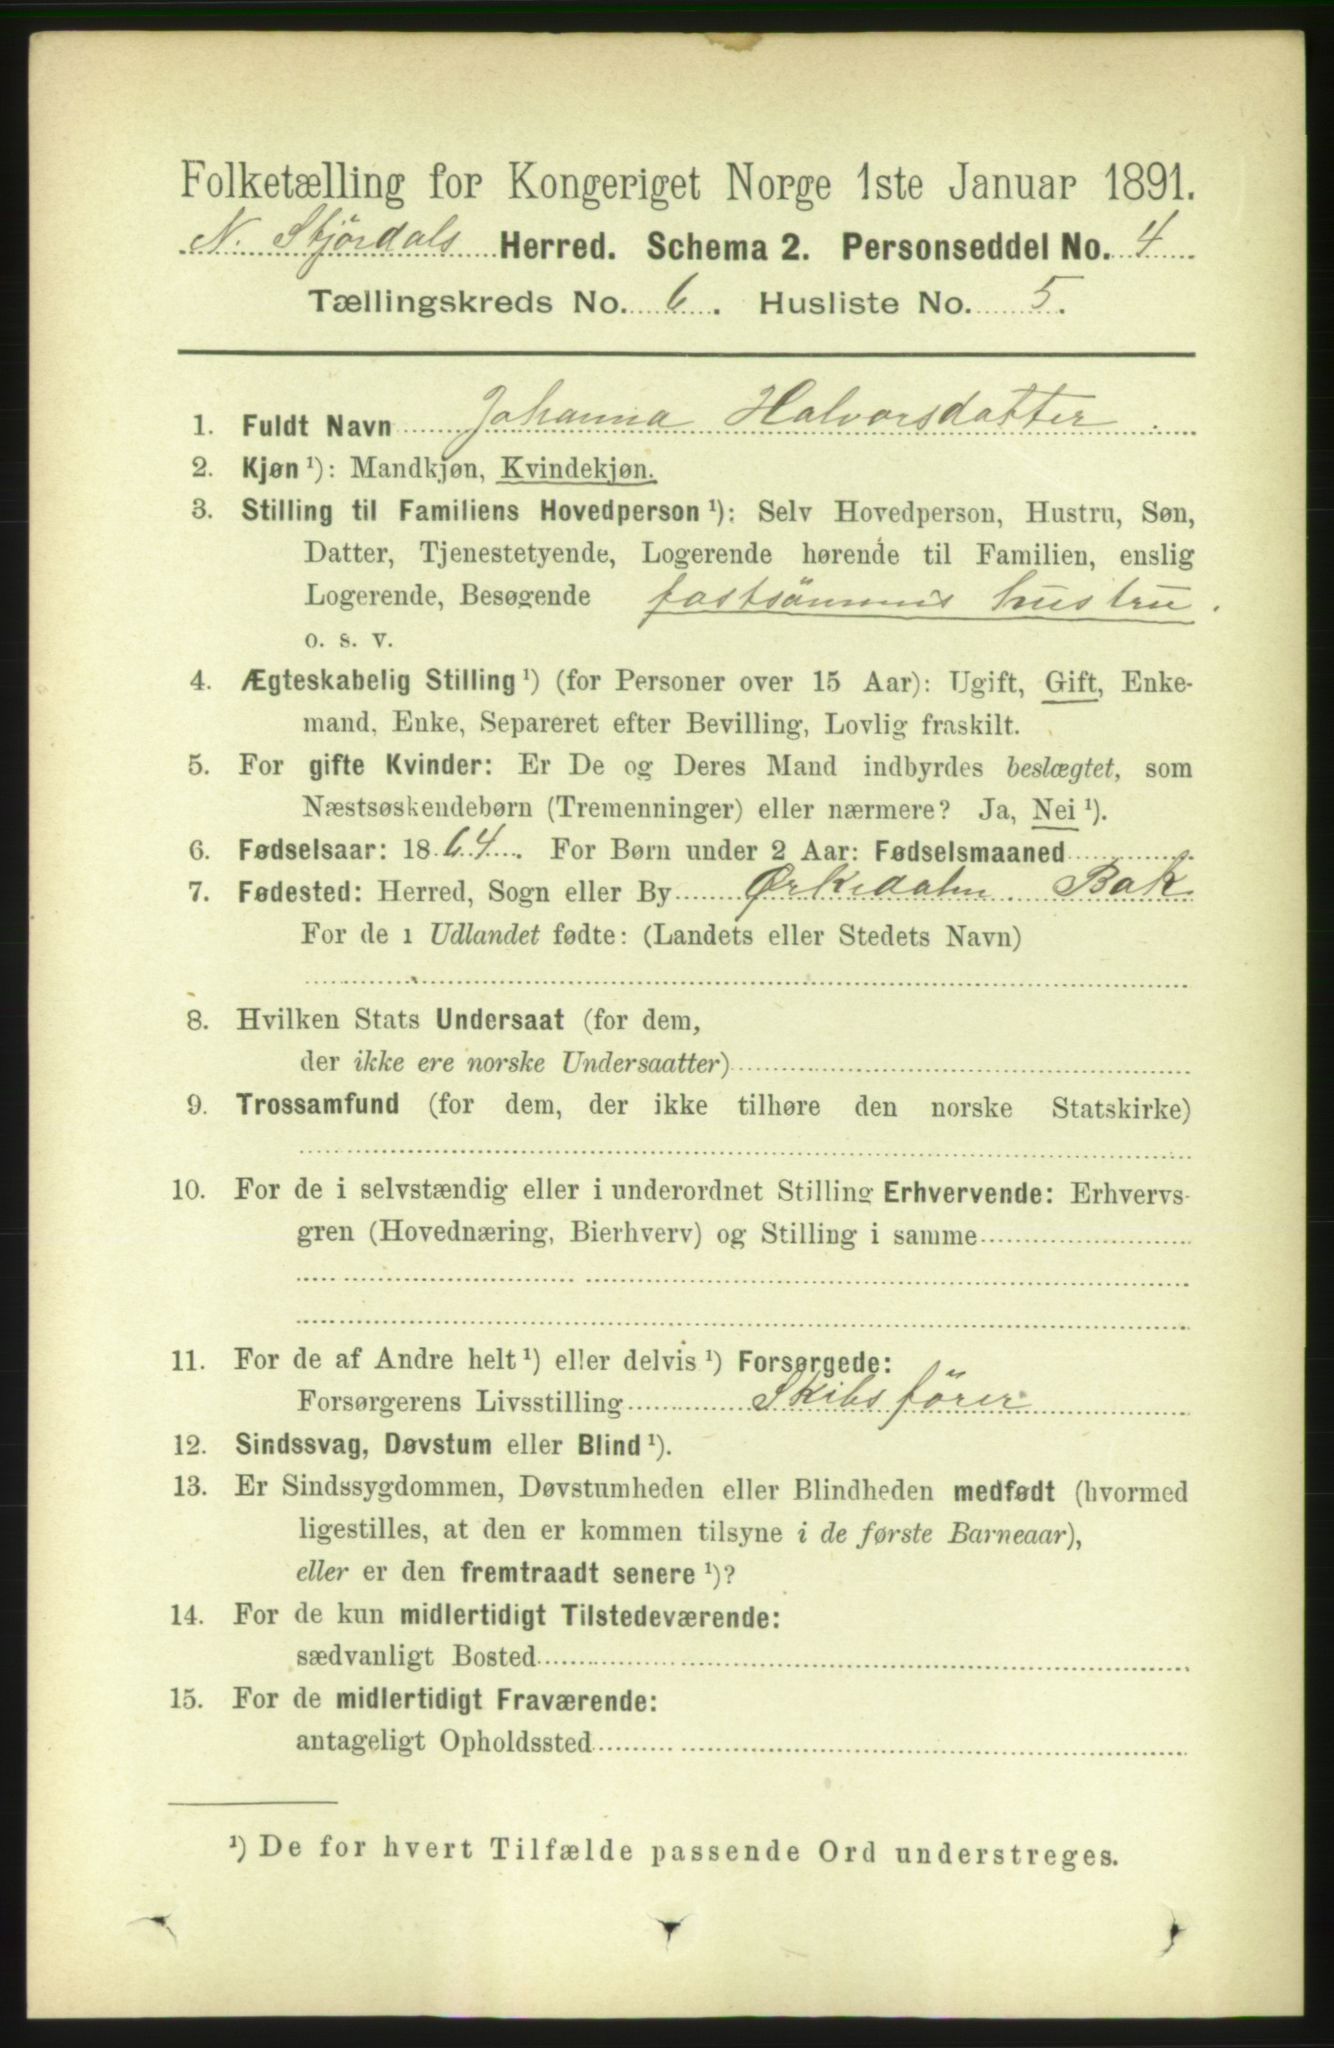 Folketælling for Kongeriget Norge 1ste Januar 1891.
N. Stjørdals Herred. Schema 2. Personseddel No. 4
Tællingskreds No. 6. Husliste No. 5.
1. Fuldt Navn Johanna Halvorsdatter
2. Kjøn ¹): Mandkjøn, Kvindekjøn.
3. Stilling til Familiens Hovedperson ¹): Selv Hovedperson, Hustru, Søn,
Datter, Tjenestetyende, Logerende hørende til Familien, enslig
Logerende, Besøgende hustru.
o. s. v.
4. Ægteskabelig Stilling ¹) (for Personer over 15 Aar): Ugift, Gift, Enke-
mand, Enke, Separeret efter Bevilling, Lovlig fraskilt.
5. For gifte Kvinder: Er De og Deres Mand indbyrdes beslægtet, som
Næstsøskendebørn (Tremenninger) eller nærmere? Ja, Nei ¹).
6. Fødselsaar: 1864. For Børn under 2 Aar: Fødselsmaaned
7. Fødested: Herred, Sogn eller By Ørkedalen. Bak
For de i Udlandet fødte: (Landets eller Stedets Navn)
8. Hvilken Stats Undersaat (for dem,
der ikke ere norske Undersaatter)
9. Trossamfund (for dem, der ikke tilhøre den norske Statskirke)
10. For de i selvstændig eller i underordnet Stilling Erhvervende: Erhvervs-
gren (Hovednæring, Bierhverv) og Stilling i samme
11. For de af Andre helt ¹) eller delvis ¹) Forsørgede:
Forsørgerens Livsstilling Skibsförer
12. Sindssvag, Døvstum eller Blind ¹).
13. Er Sindssygdommen, Døvstumheden eller Blindheden medfødt (hvormed
ligestilles, at den er kommen tilsyne i de første Barneaar),
eller er den fremtraadt senere ¹)?
14. For de kun midlertidigt Tilstedeværende:
sædvanligt Bosted
15. For de midlertidigt Fraværende:
antageligt Opholdssted
¹) De for hvert Tilfælde passende Ord understreges.